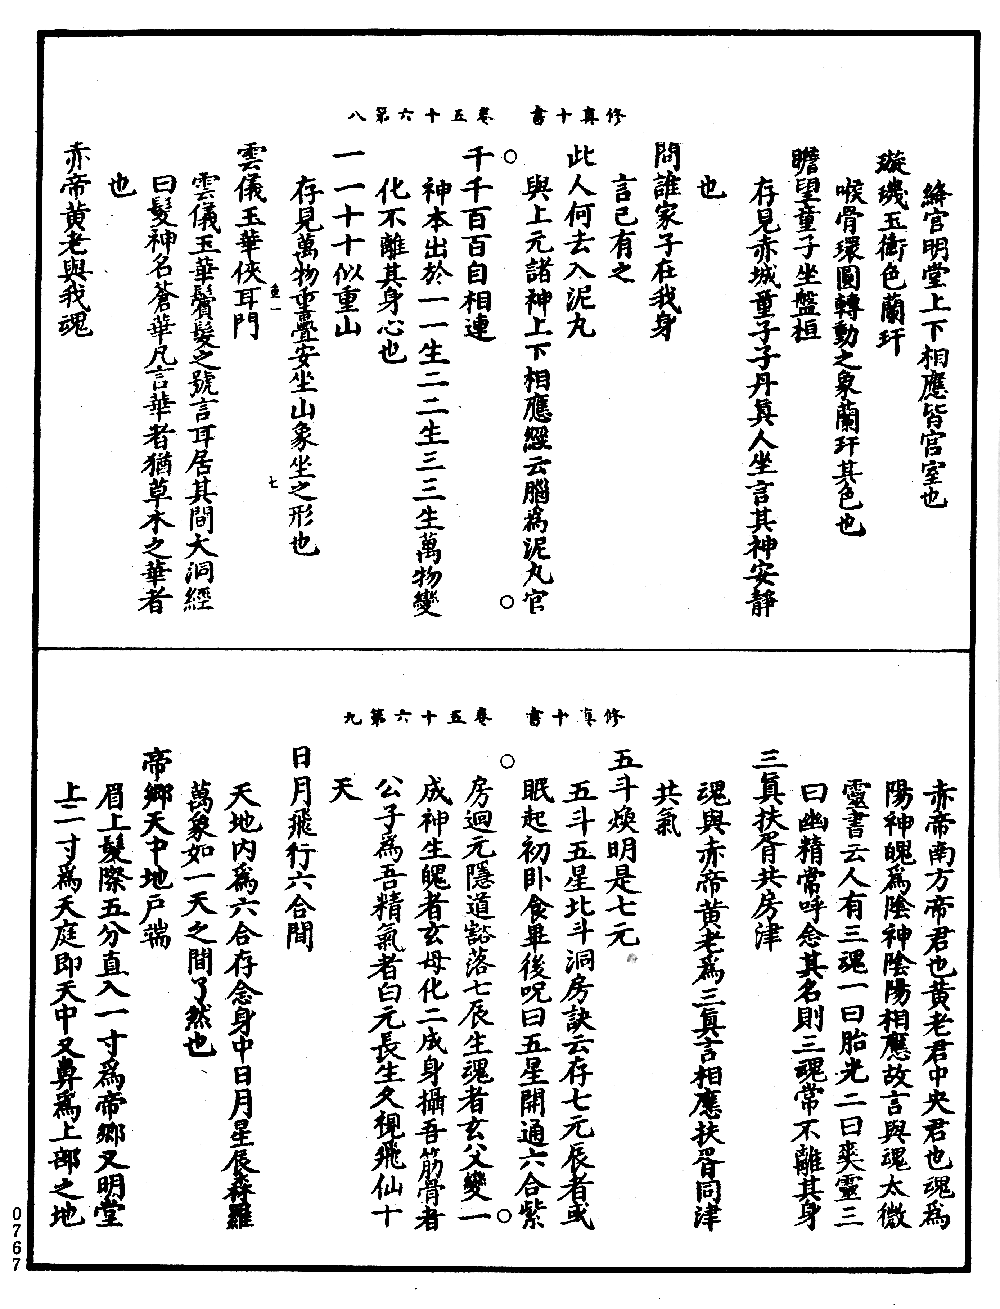 修真十書　卷五十六第八
絳宮明堂上下相應皆宮室也
璇璣玉衡色蘭玕
喉骨環圓轉動之象蘭玕其色也
瞻望童子坐盤桓
存見赤城童子子丹真人坐言其神安靜
也
問誰家子在我身
言己有之
此人何去入泥丸
與上元諸神上下相應經云腦為泥丸宮
千千百百自相連
神本出於一一生二二生三三生萬物變
化不離其身心也
一一十十似重山
存見萬物重疊安坐山象坐之形也
七
雲儀玉華俠耳門
雲儀玉華鬢髮之號言耳居其間大洞經
曰髮神名蒼華凡言華者猶草木之華者
也
赤帝黃老與我魂
修真十書　卷五十六第九
赤帝南方帝君也黃老君中央君也魂為
陽神魄為陰神陰陽相應故言與魂太微
靈書云人有三魂一曰胎光二曰爽靈三
曰幽精常呼念其名則三魂常不離其身
三真扶胥共房津
魂與赤帝黃老為三真言相應扶胥同津
共氣
五斗煥明是七元
五斗五星北斗洞房訣云存七元辰者或
眠起初卧食畢後呪曰五星開通六合紫
房迴元隱道豁落七辰生魂者玄父變一
成神生魄者玄母化二成身攝吾筋骨者
公子為吾精氣者白元長生久視飛仙十
天
日月飛行六合間
天地內為六合存念身中日月星辰森羅
萬象如一天之間了然也
帝鄉天中地戶端
眉上髮際五分直入一寸為帝鄉又明堂
上一寸為天庭即天中又鼻為上部之地
0767